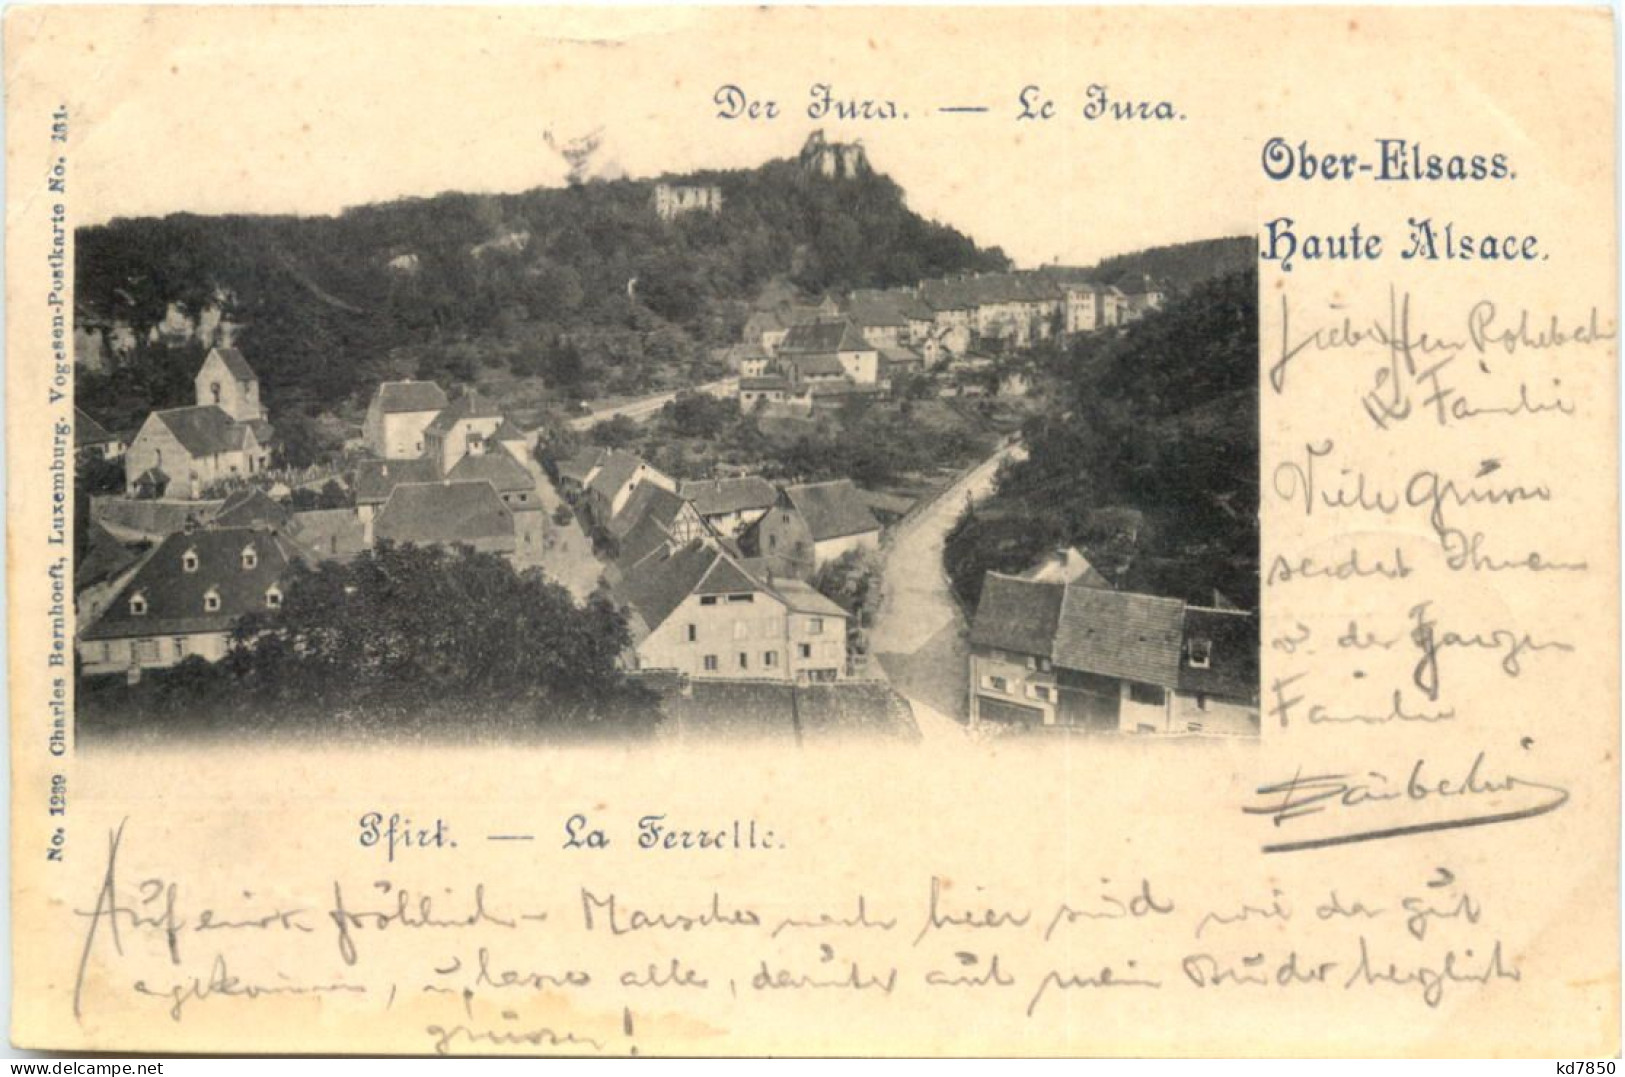 Der Jura. — Le Jura.
Ober-Elsass.
Haute Alsace.
No. 1239 Charles Bernhoeft, Luxemburg. Vogesen-Postkarte No. 131.
Lieber Herr
& Familie
Viele Grüsse
sendet Ihnen
u. der Ganzen
Familie
Pfirt. — La Ferrette.
Auf einem fröhlichen Marsche nach hier sind wir da gut
angekommen, u. lassen alle, darunter auch mein Bruder herzlich
grüssen!
delcampe.net
kd7850